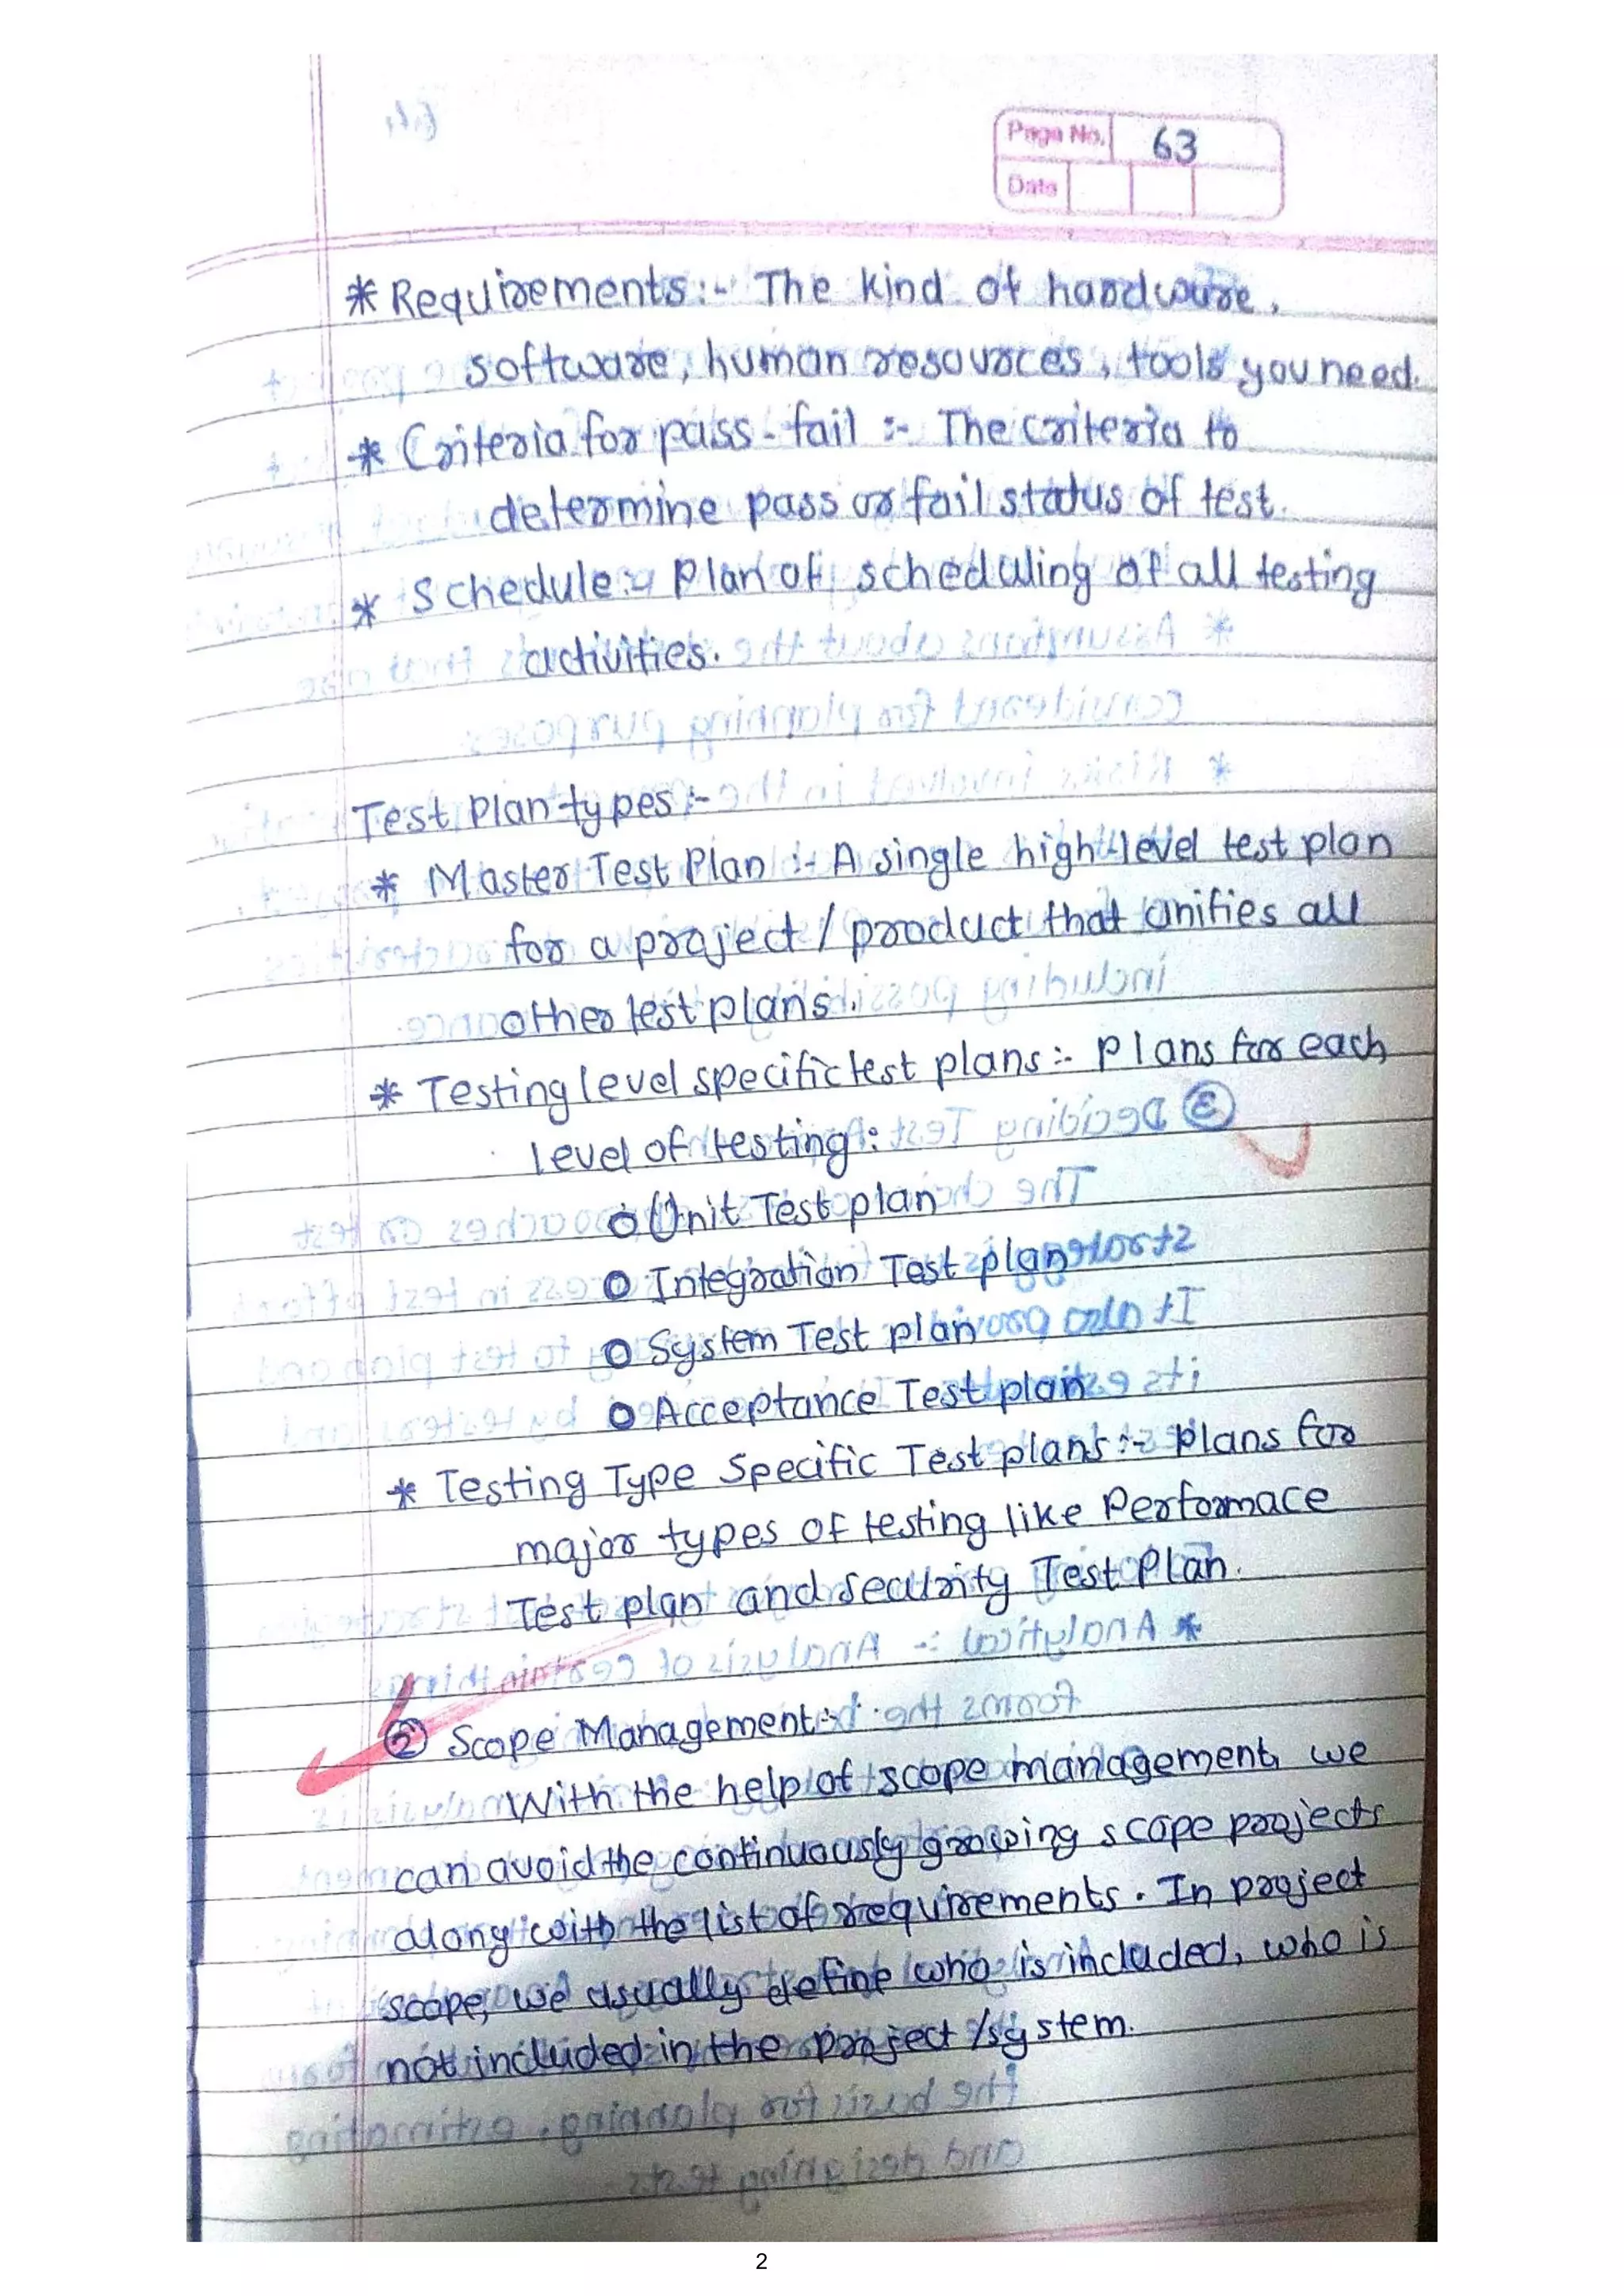 Page No. 63
Date
* Requirements :- The kind of hardware,
software, human resources, tools you need.
* Criteria for pass - fail :- The criteria to
determine pass or fail status of test.
* Schedule :- Plan of scheduling of all testing
activities.
Test Plan types :-
* Master Test Plan :- A single high-level test plan
for a project / product that unifies all
other test plans.
* Testing level specific test plans :- Plans for each
level of testing:
o Unit Test plan
o Integration Test plan
o System Test plan
o Acceptance Test plan
* Testing Type Specific Test plans :- Plans for
major types of testing like Performace
Test plan and security Test Plan.
② Scope Management :-
With the help of scope management, we
can avoid the continuously growing scope projects
along with the list of requirements. In project
scope, we usually define who is included, who is
not included in the project /system.
2